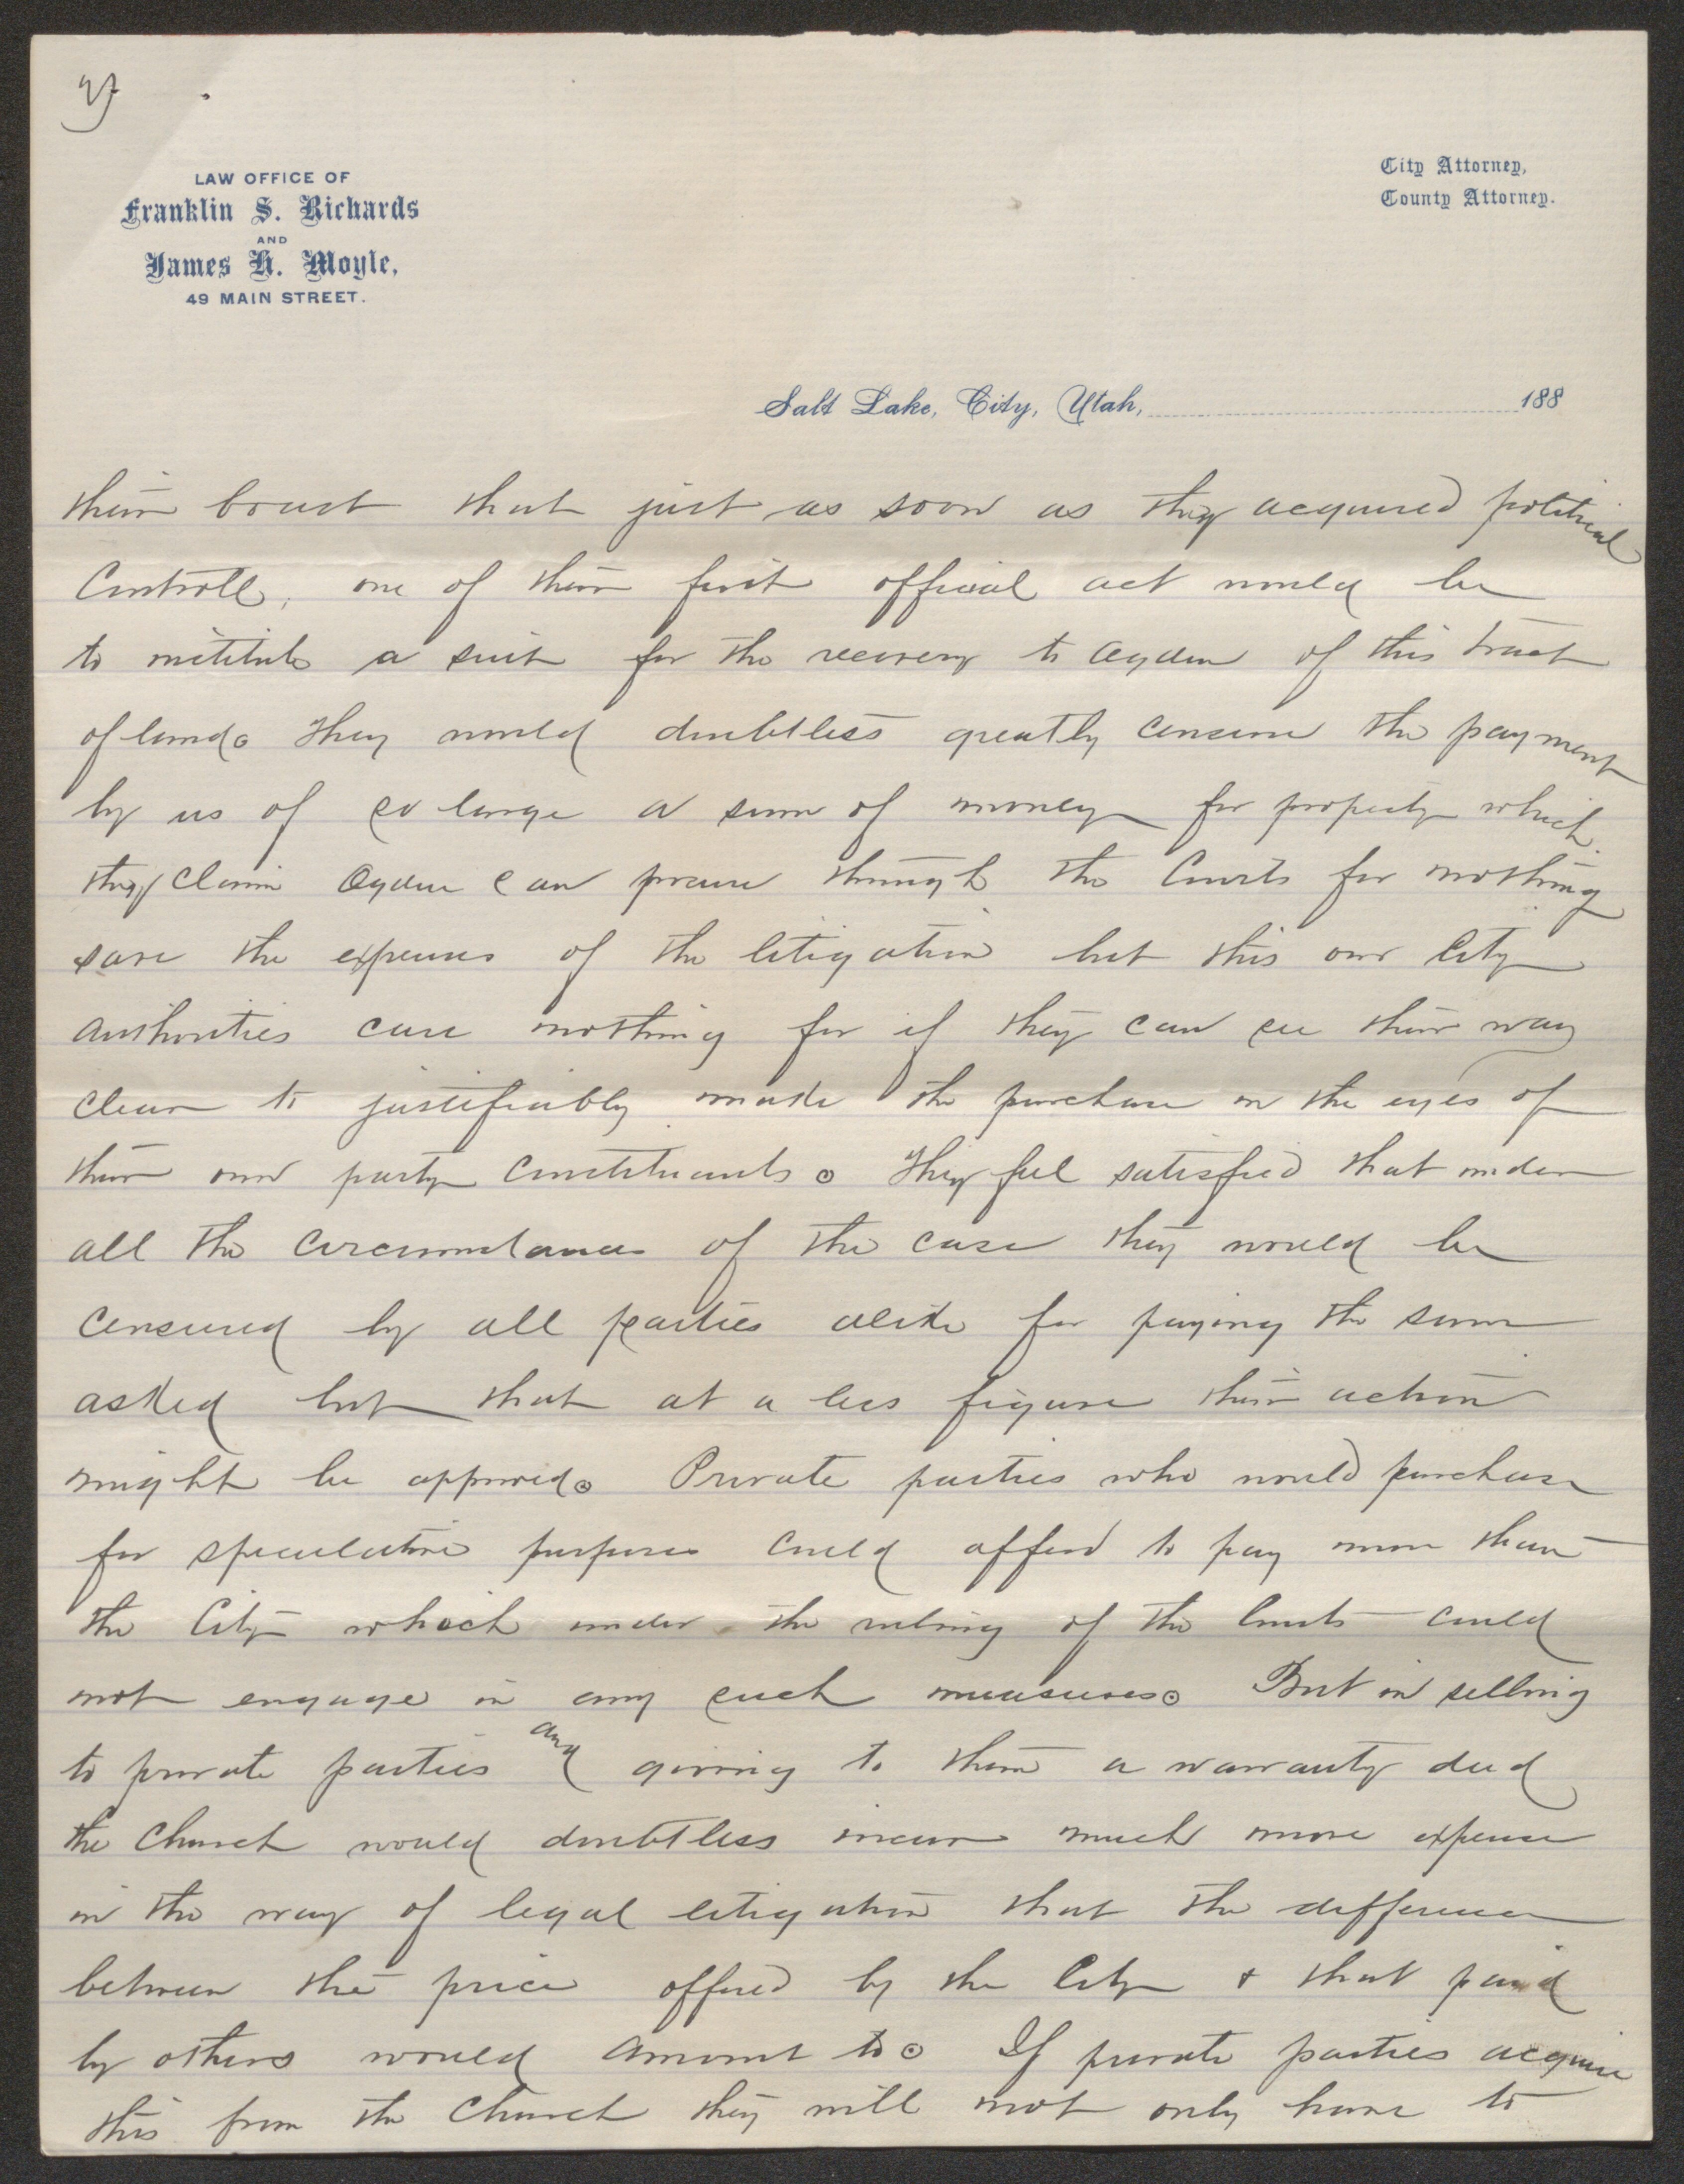 2)
LAW OFFICE OF
Franklin S. Richards
AND
James H. Moyle,
49 MAIN STREET.
City Attorney,
County Attorney.
Salt Lake, City, Utah, 188
their boast that just as soon as they acquired political
Controll, one of their first official act would be
to institute a suit for the recovery to Ogden of this tract
of land. They would doubtless greatly censure the payment
by us of so large a sum of money for property which
they claim Ogden can procure through the Courts for nothing
save the expenses of the litigation but this our City
authorities care nothing for if they can see their way
clear to justifiably make the purchase in the eyes of
their own party Constituants. They feel satisfied that under
all the circumstances of the case they would be
censured by all parties alike for paying the sum
asked but that at a less figure their action
might be approved. Private parties who would purchase
for speculative purposes could afford to pay more than
the City which under the ruling of the Courts could
not engage in any such measures. But in selling
to private parties and giving to them a warranty deed
the Church would doubtless incur much more expense
in the way of legal litigation that the difference
between the price offered by the City & that paid
by others would amount to. If private parties acquire
this from the Church they will not only have to